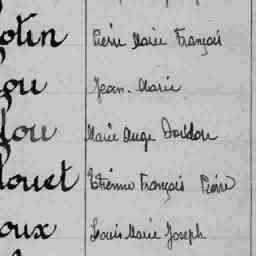 otin Pierre Marie François
ou Jean-Marie
lou Marie Ange
louet Etienne François Pierre
oux Louis Marie Joseph